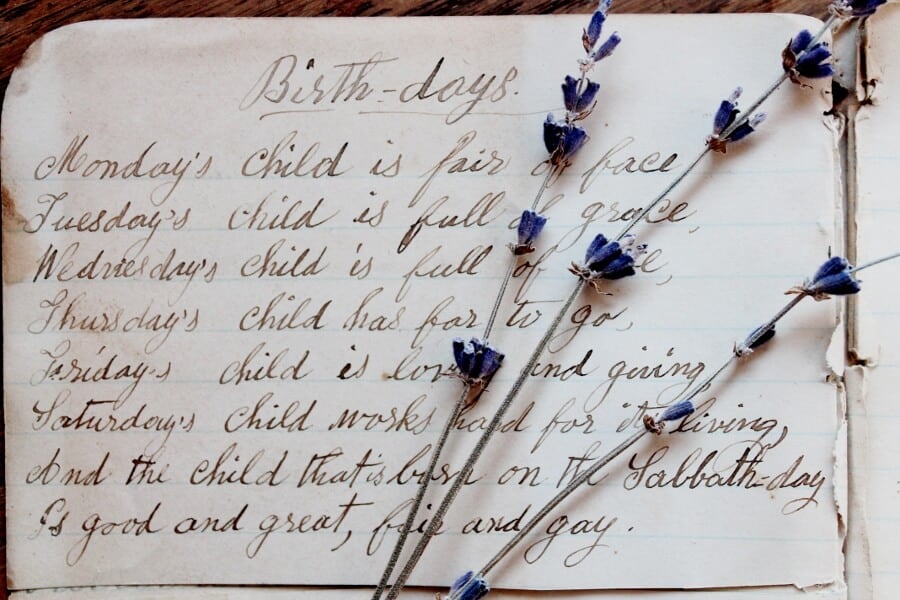 Birth-days.
Monday's child is fair of face
Tuesday's child is full of grace,
Wednesday's child is full of
Thursday's child has far to go,
Friday's child is loving and giving
Saturday's child works hard for its living,
And the child that's born on the Sabbath-day
Is good and great, fair and gay.